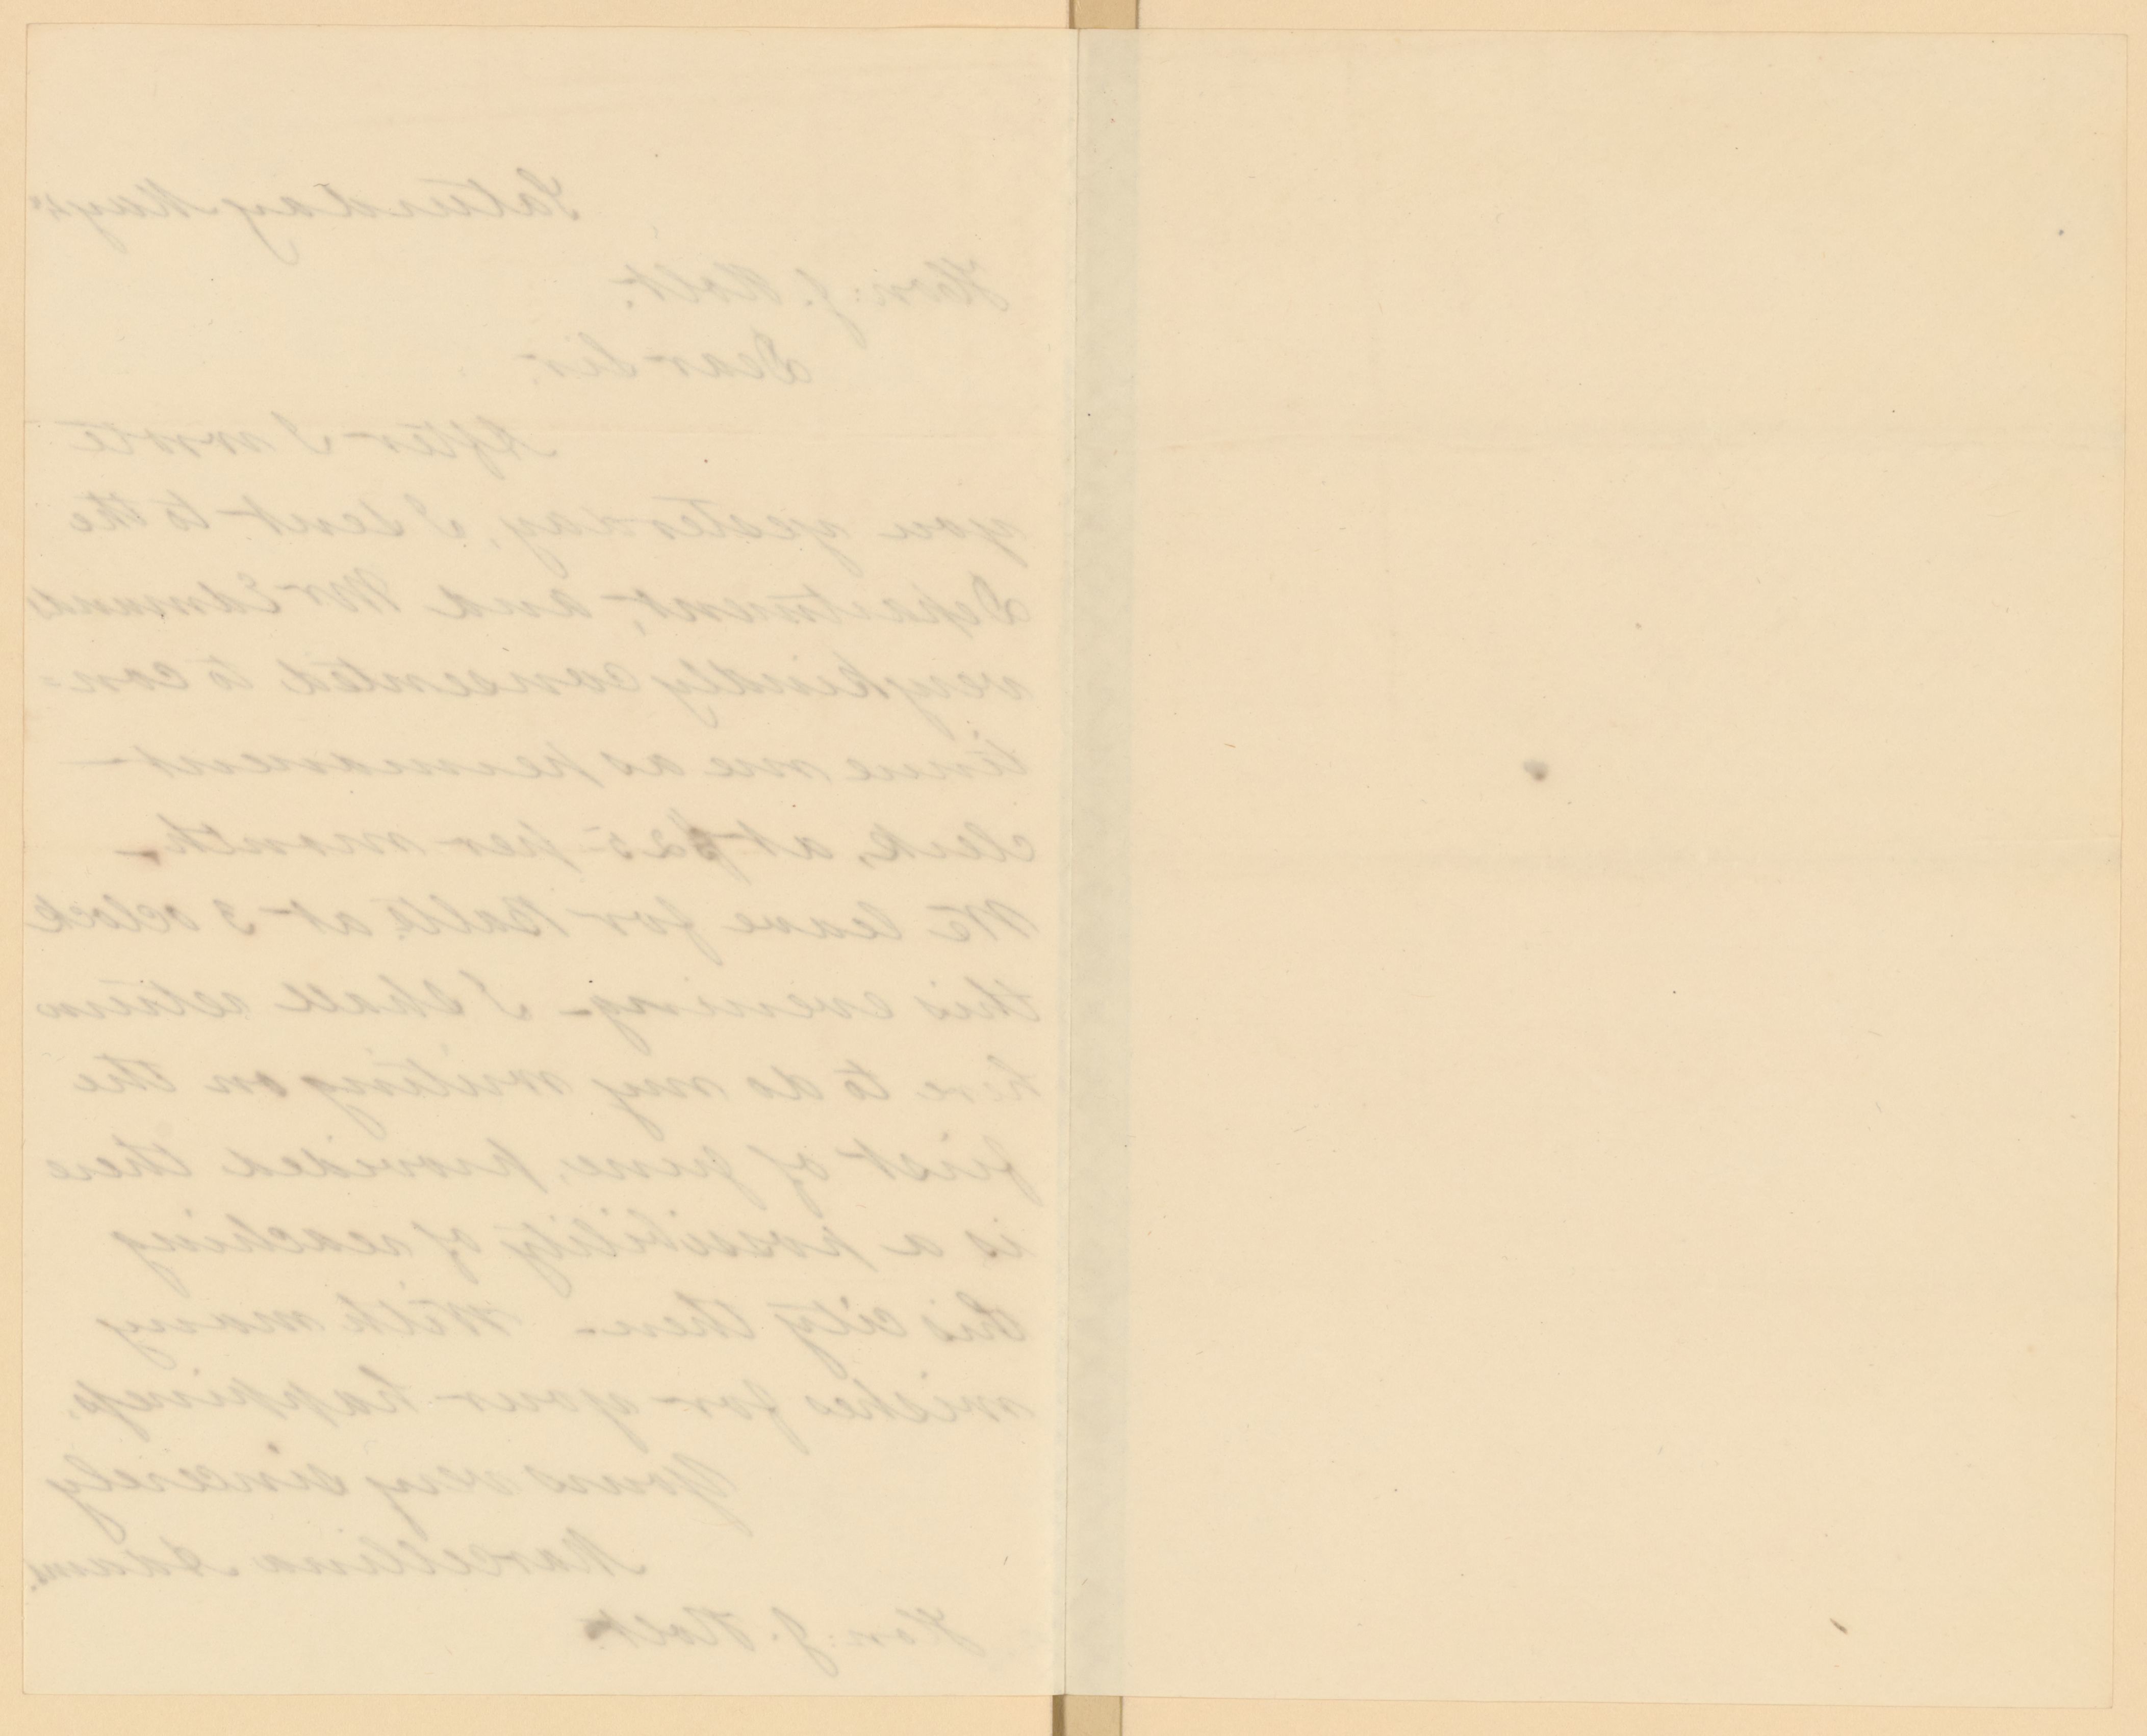 Saturday May 4
Hon: J. Holt.
Dear Sir,
After I wrote
you yesterday, I sent to the
Department, and Mr Edmunds
very kindly consented to con-
tinue me as permanent
clerk, at $25 per month.
We leave for Balto. at 3 oclock
this evening - I shall return
here to do my writing on the
first of June, provided there
is a possibility of reaching
this city then - With many
wishes for your happiness.
Yours very sincerely
Marcellina Adams.
Hon: J. Holt.